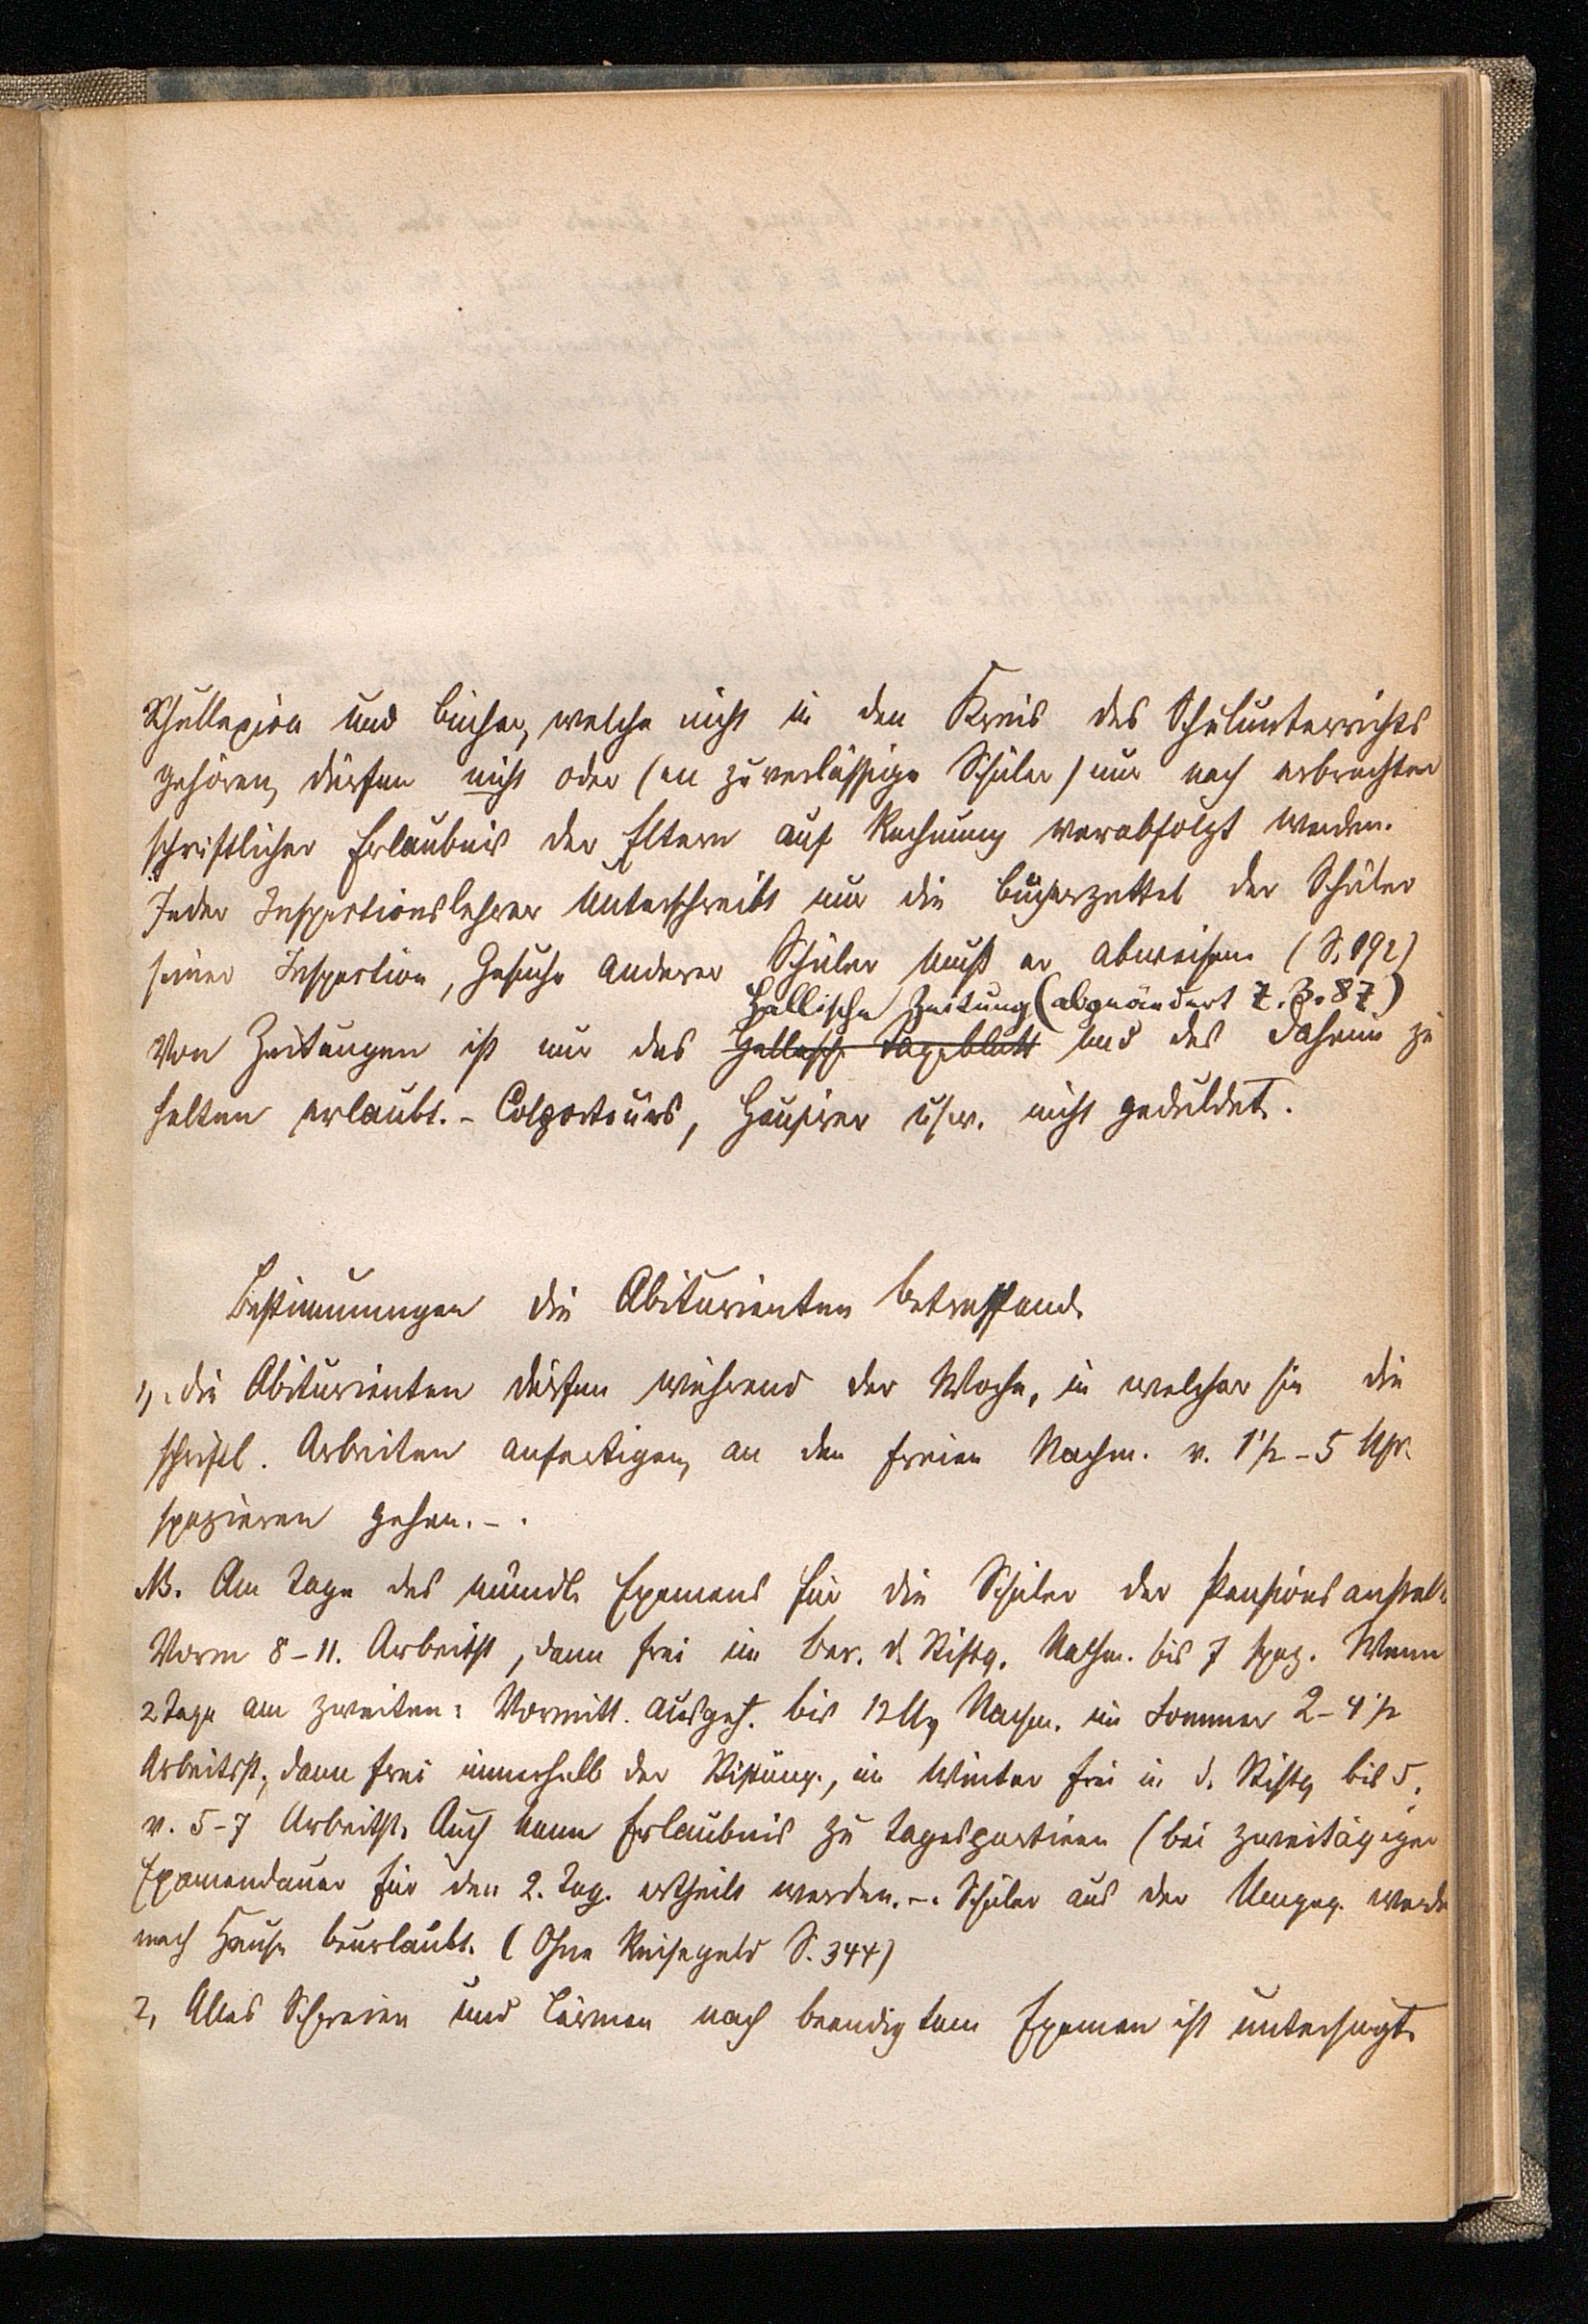 Schullexica und Bücher, welche nicht in den Kreis des Schulunterrichts
gehören, dürfen nicht oder (an zuverlässige Schüler) nur nach erbrachter
schriftlicher Erlaubnis der Eltern auf Rechnung verabfolgt werden.
Jeder Inspectionslehrer unterschreibt nur die Bücherzettel der Schüler
seiner Inspection, Gesuche anderer Schüler muß er abweisen (S. 192)
Hallische Zeitung (abgeändert 7.3.87)
Von Zeitungen ist nur das Hallesche Tageblatt und das Daheim zu
halten erlaubt. - Colporteurs, Hausirer usw. nicht geduldet.
Bestimmungen die Abiturienten betreffend.
1, die Abiturienten dürfen während der Woche, in welcher sie die
schriftl. Arbeiten anfertigen, an den freien Nachm. v. 1 1/2 - 5 Uhr
spazieren gehen. -
NB. Am Tage des mündl. Examens für die Schüler der Pensionsanstalt
Vorm 8-11. Arbeitsst, dann frei im Ber. d. Stiftg. Nachm. bis 7 spaz. Wenn
2 Tage am zweiten: Vormitt. Ausgeh. bis 12 U, Nachm. im Sommer 2-4 1/2
Arbeitsst., dann frei innerhalb der Stiftung., im Winter frei in d. Stiftg bis 5,
v. 5-7 Arbeitsst. Auch kann Erlaubnis zu Tagespartieen (bei zweitägiger
Examendauer für den 2. Tag. ertheilt werden. -. Schüler aus der Umgeg. werde
nach Hause beurlaubt. (Ohne Reisegeld S. 344)
2, Alles Schreien und Lärmen nach beendigtem Examen ist untersagt.